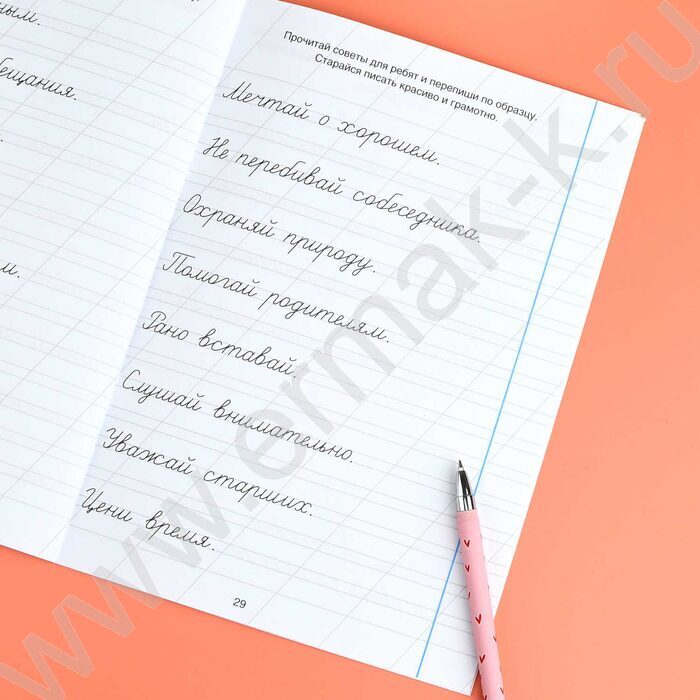 ным.
бещания.
м.
Прочитай советы для ребят и перепиши по образцу.
Старайся писать красиво и грамотно.
Мечтай о хорошем.
Не перебивай собеседника.
Охраняй природу.
Помогай родителям.
Рано вставай.
Слушай внимательно.
Уважай старших.
Цени время.
29
www.ermak-k.ru